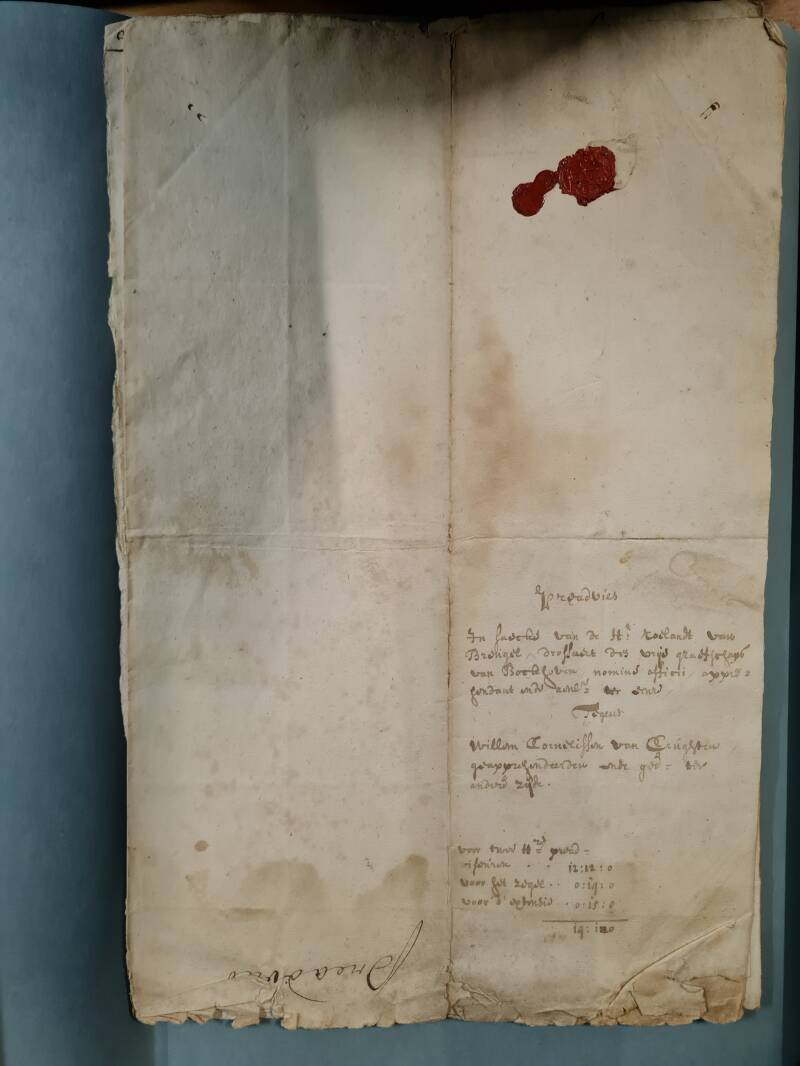 Preadvies
In saecke van de Hr. Roelandt van
Brengel, Drossaert des vrije graefschaps
van Bockhoven, nomine officii, appre-
hendant ende ter eenre
Tegens
Willem Cornelissen van Crughten
geapprehendeerden ende ged.e ter
andere zijde.
voor twee H.ren pread-
viseuren . . 12:12:0
voor het zegel . . 0:19:0
voor d'extensie . 0:15:0
Preadvies